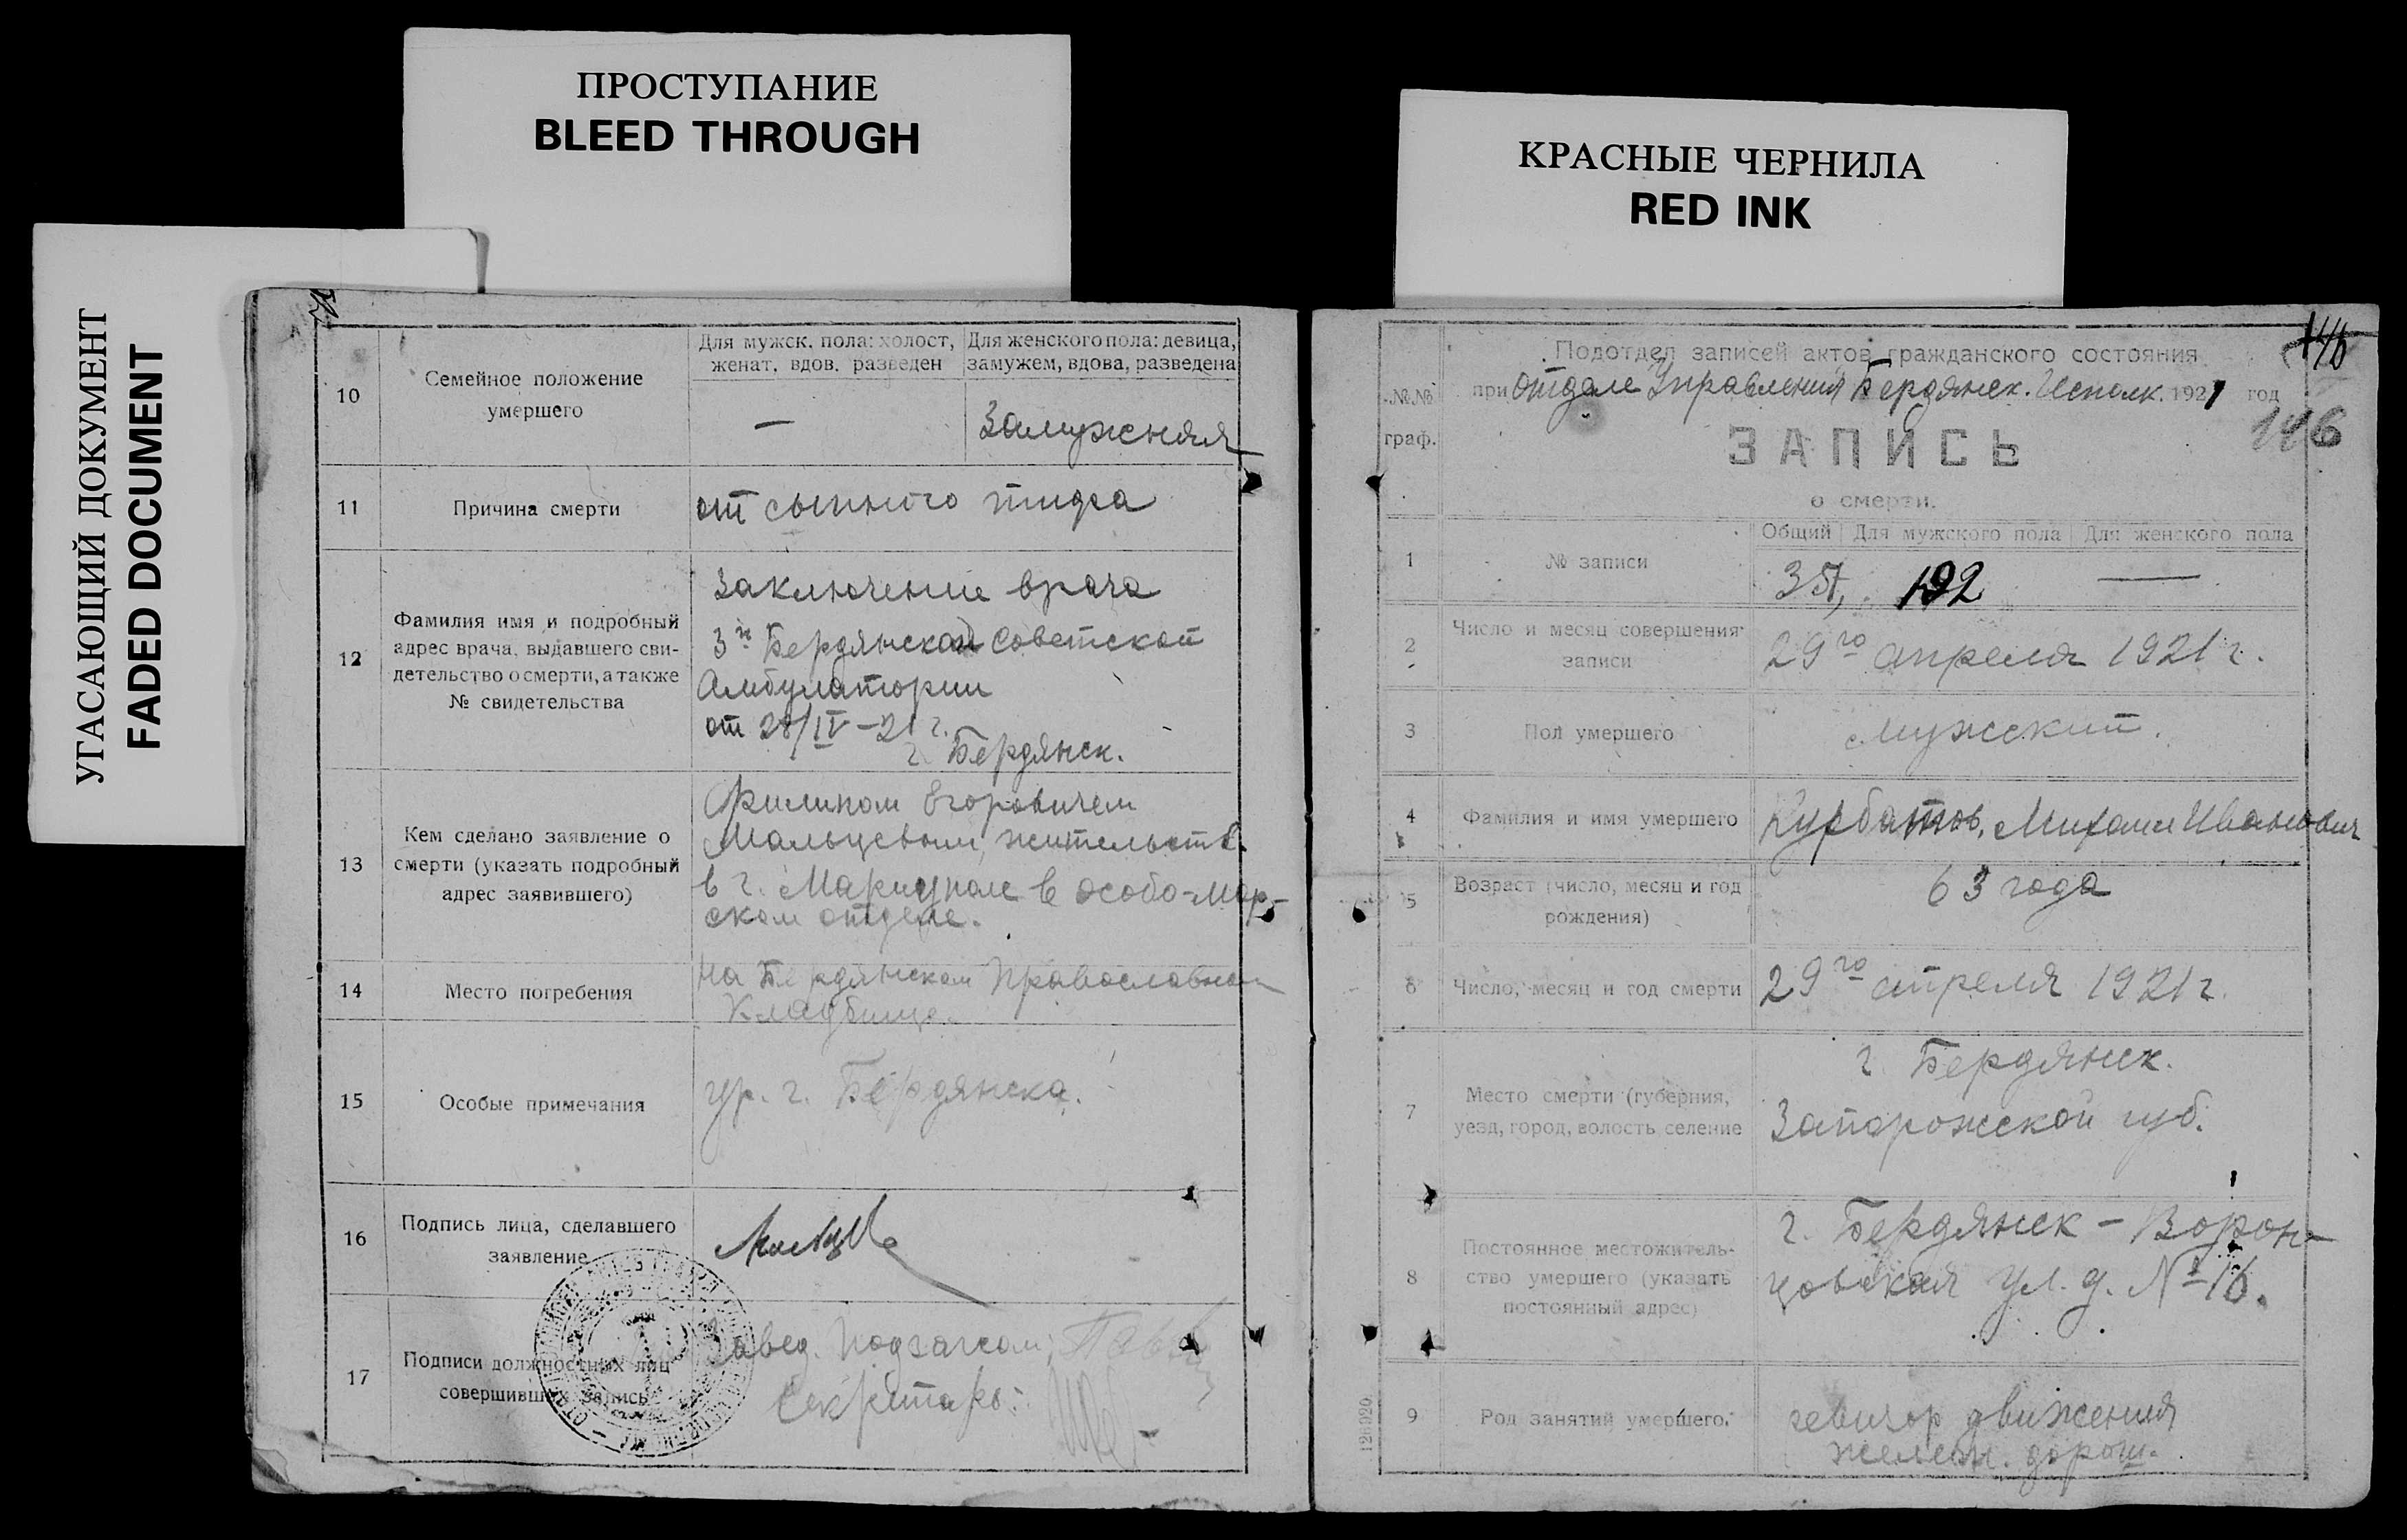 ПРОСТУПАНИЕ
BLEED THROUGH
КРАСНЫЕ ЧЕРНИЛА
RED INK
УГАСАЮЩИЙ ДОКУМЕНТ
FADED DOCUMENT
10
Семейное положение
умершего
Для мужск. пола: холост,
женат, вдов, разведен
Для женского пола: девица,
замужем, вдова, разведена
—
Замужняя
11
Причина смерти
от сыпного тифа
12
Фамилия имя и подробный
адрес врача, выдавшего сви-
детельство о смерти, а также
№ свидетельства
Заключение врача
3й Бердянской Советской
Амбулатории
от 28/IV–21 г.
г. Бердянск.
13
Кем сделано заявление о
смерти (указать подробный
адрес заявившего)
Филипом Егоровичем
Мальцевым, жительств.
в г. Мариуполе в особо-мор-
ском отделе.
14
Место погребения
На Бердянском Православном
Кладбище.
15
Особые примечания
гр. г. Бердянска.
16
Подпись лица, сделавшего
заявление
17
Подписи должностных лиц
совершивших запись
Завед. Подзагсом:
Секретарь:
146
№№
граф.
Подотдел записей актов гражданского состояния
при Отделе Управления Бердянск. Исполк. 1921 год
146
ЗАПИСЬ
о смерти.
1
№ записи
Общий
Для мужского пола
Для женского пола
357,
192
—
2
Число и месяц совершения
записи
29го апреля 1921 г.
3
Пол умершего
Мужской.
4
Фамилия и имя умершего
Курбатов, Михаил Иванович
5
Возраст (число, месяц и год
рождения)
63 года
6
Число, месяц и год смерти
29го апреля 1921 г.
7
Место смерти (губерния,
уезд, город, волость селение
г. Бердянск.
Запорожской губ.
8
Постоянное местожитель-
ство умершего (указать
постоянный адрес)
г. Бердянск – Ворон-
цовская ул. д. № 16.
9
Род занятий умершего.
ревизор движения
железн. дорог.
126920